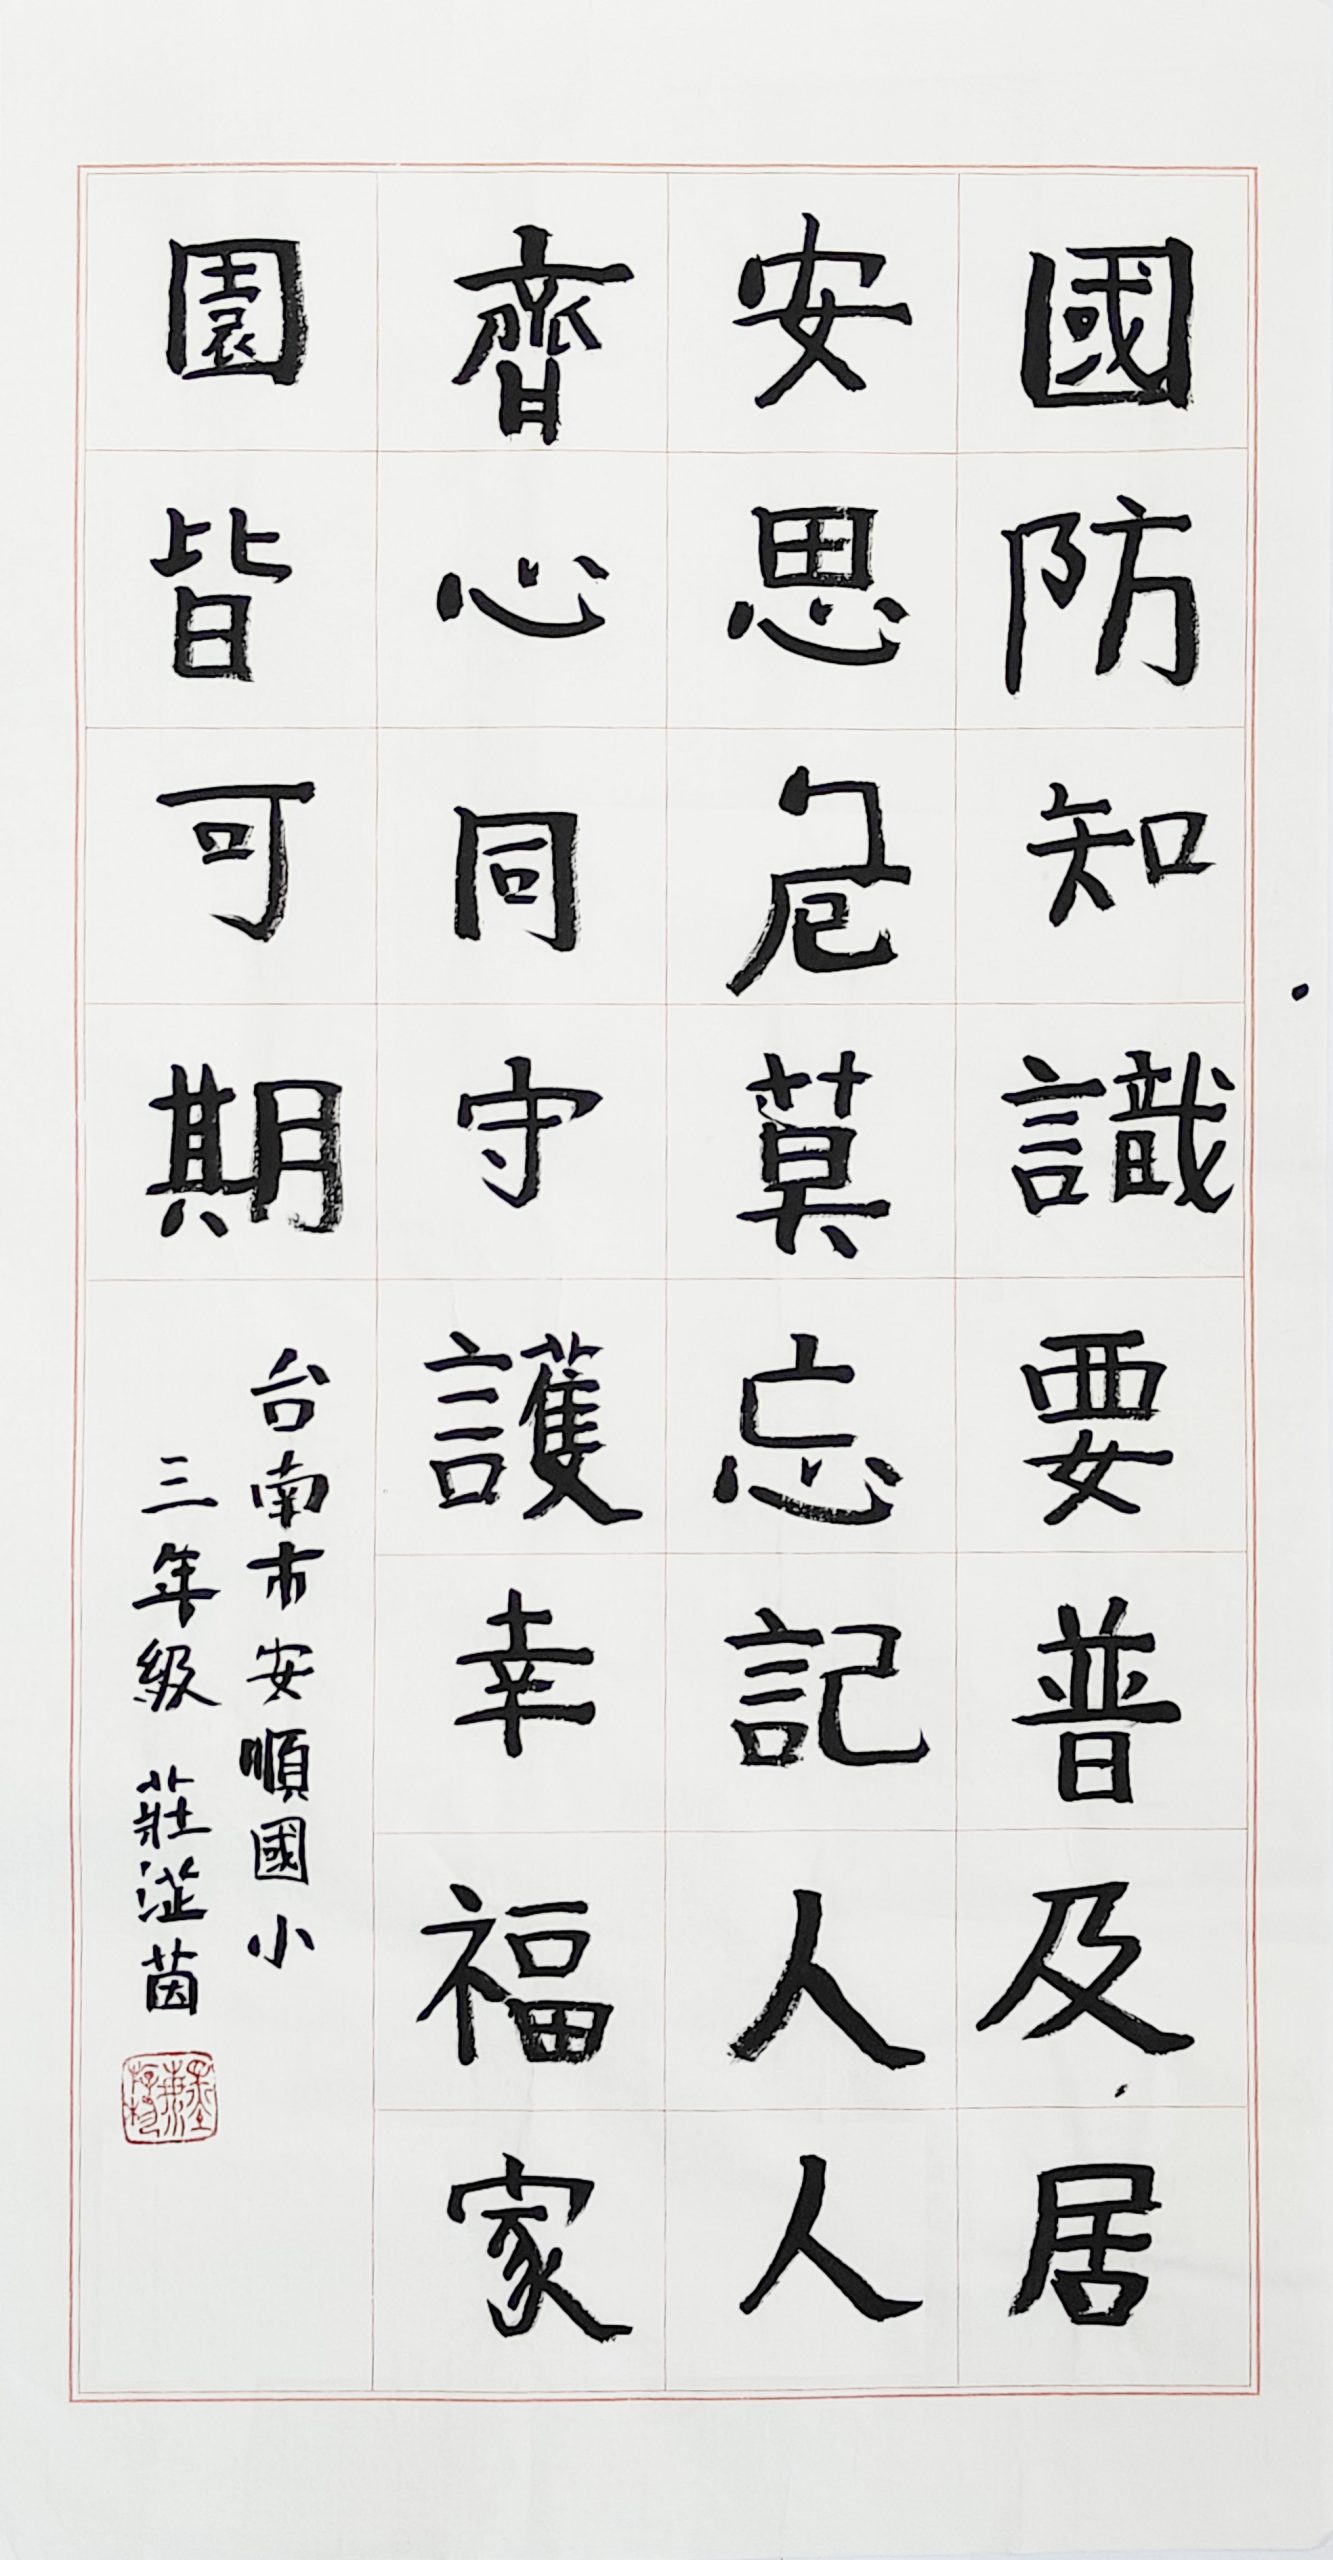 國防知識要普及居
安思危莫忘記人人
齊心同守護幸福家
園皆可期
台南市安順國小
三年級 莊茵